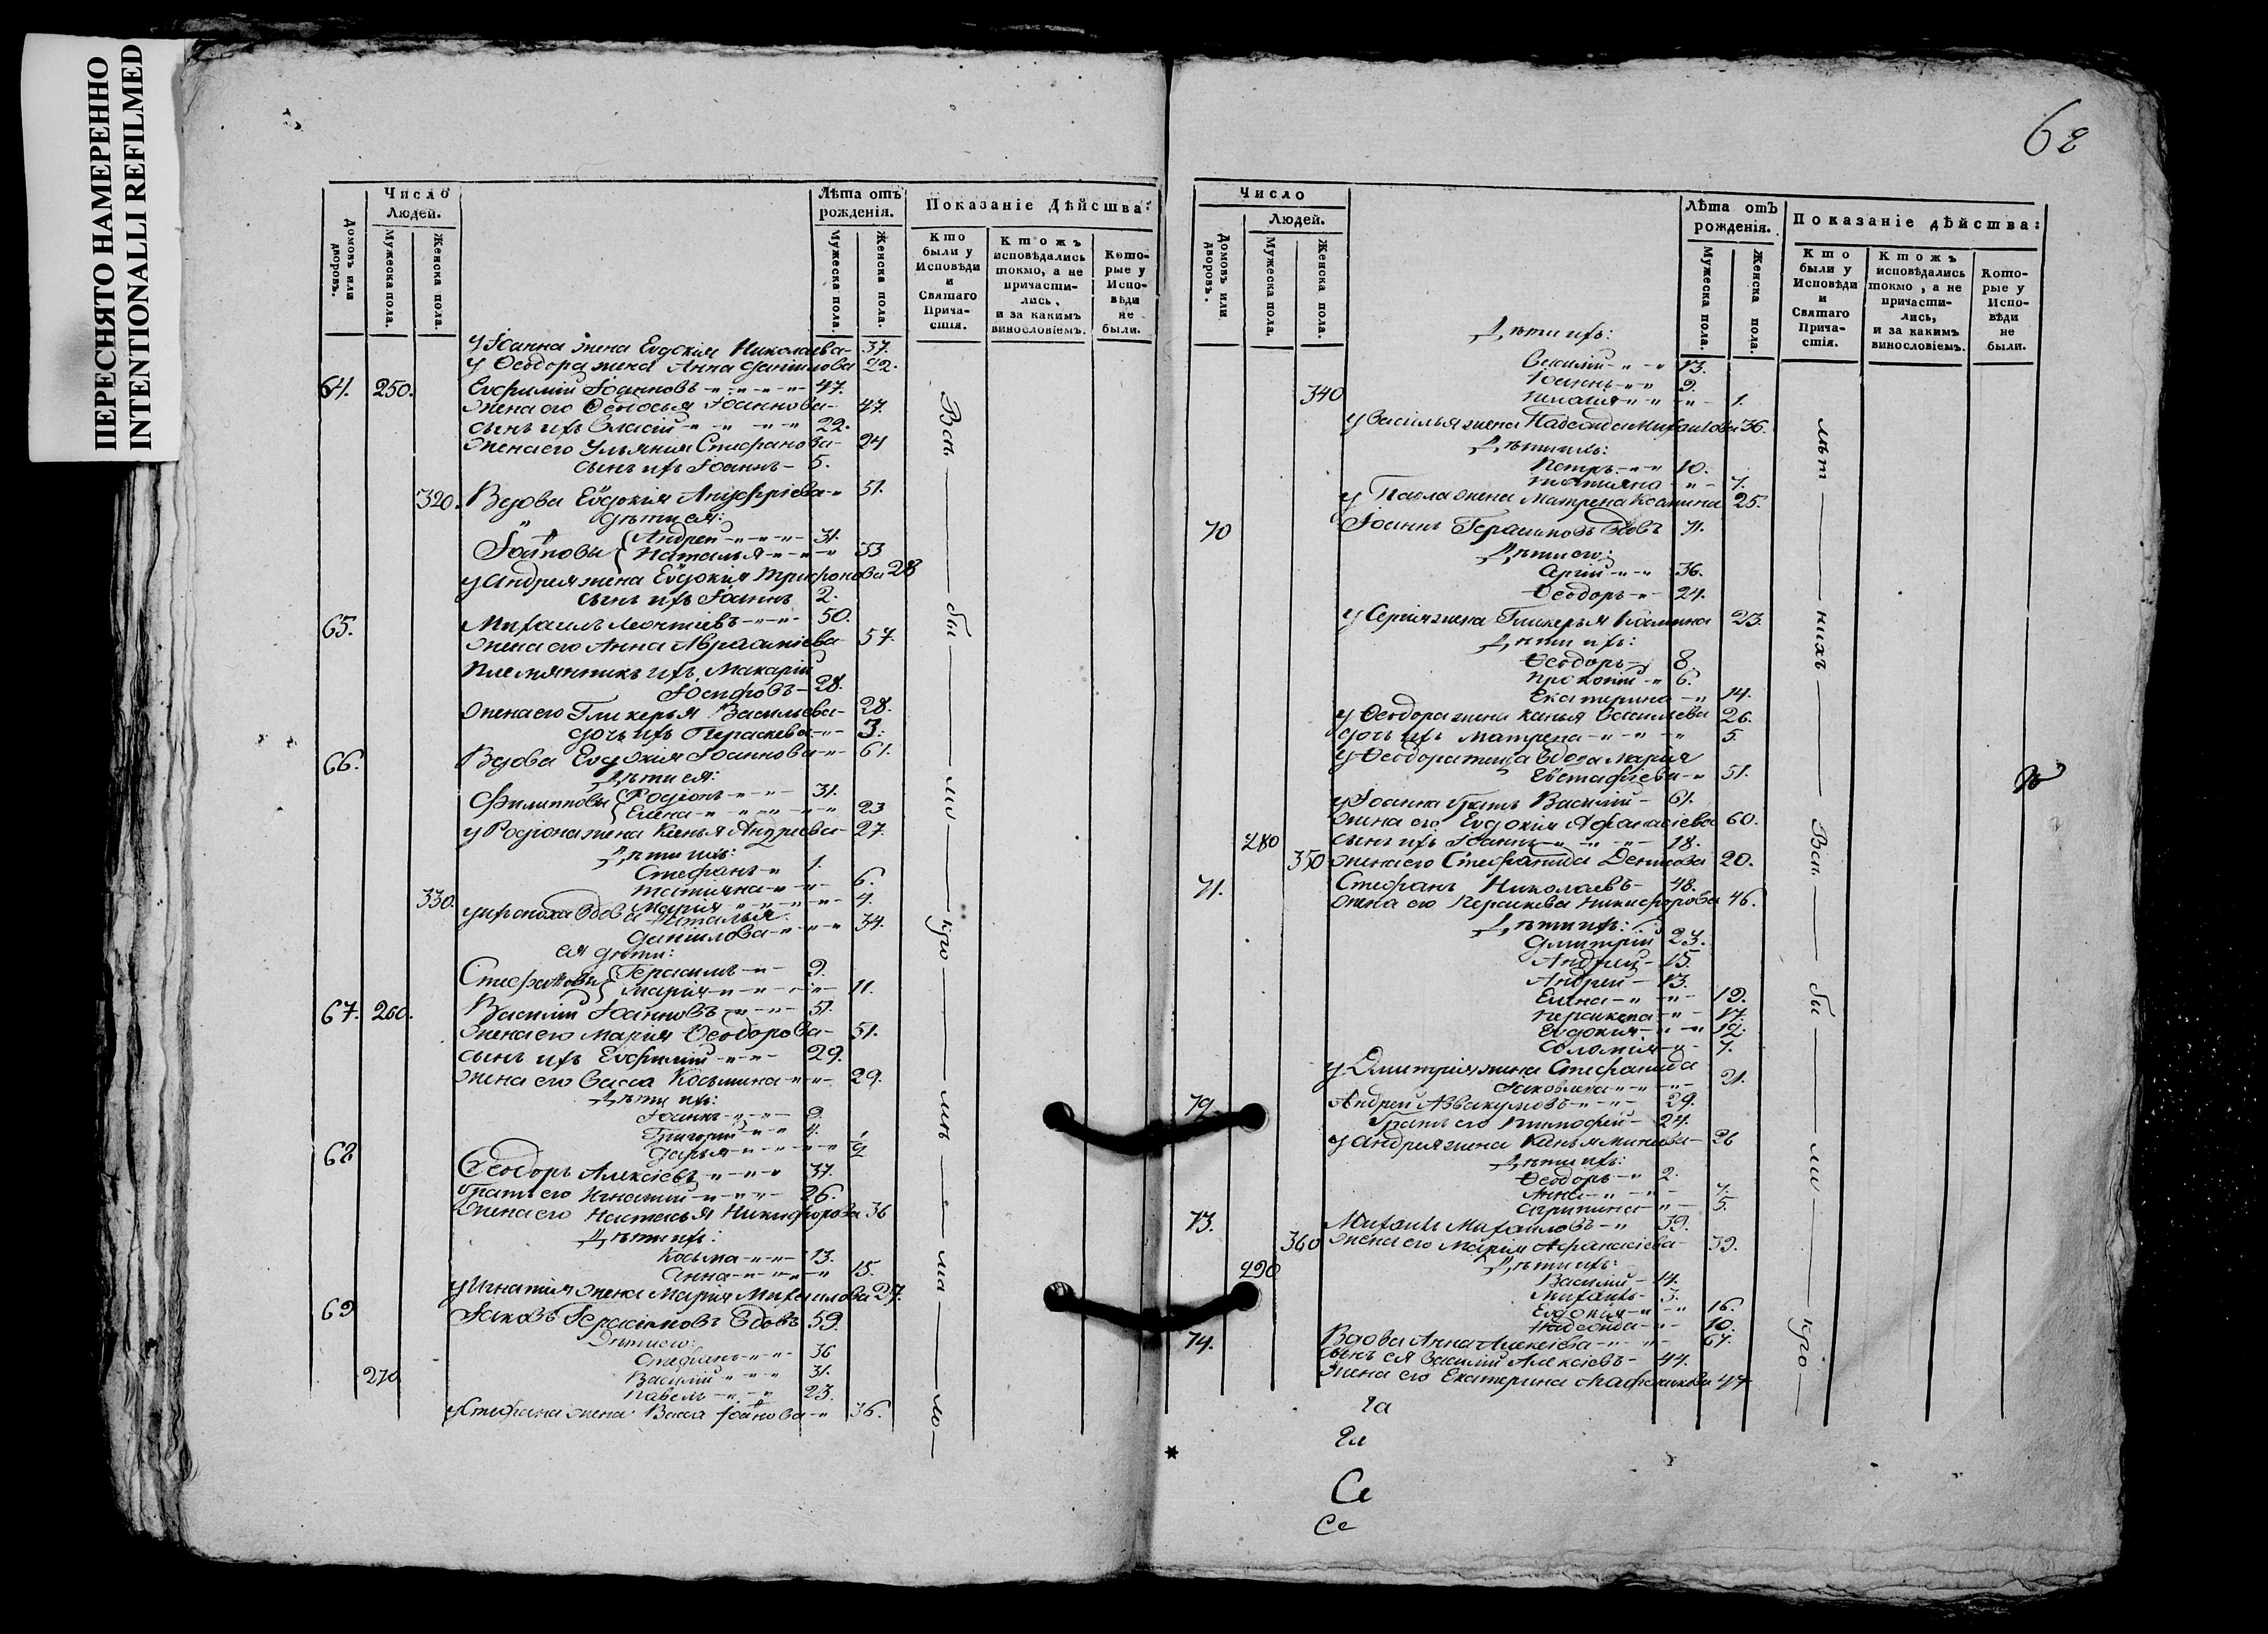 ПЕРЕСНЯТО НАМЕРЕННО
INTENTIONALLI REFILMED
Число
Людей.
Домовъ или дворовъ.
Мужеска пола.
Женска пола.
Лѣта отъ рожденія.
Мужеска пола.
Женска пола.
Показаніе Дѣйства:
Кто были у Исповѣди и Святаго Причастія.
Ктожъ исповѣдались токмо, а не причастились, и за какимъ винословіемъ.
Которые у Исповѣди не были.
у Іоанна жена Евдокія Николаева - 37.
у Ѳеодора жена Анна Даніилова 22.
64. 250. Евфимій Іоанновъ 47.
жена его Ѳеодосья Іоаннова - 47.
сынъ ихъ Власій 22.
жена его Ульянія Стефанова - 24
сынъ ихъ Іоаннъ - 5.
320. Вдова Евдокія Ануфріева 51.
дѣти ея:
Андрей 31.
Наталья 33
у Андрея жена Евдокія Трифонова 28
сынъ ихъ Іоаннъ 2.
65. Михаилъ Леонтіевъ 50.
жена его Анна Авраамiева 57.
племянникъ ихъ Макарій
Іосифовъ - 28.
жена его Гликерья Васильева - 28.
дочь ихъ Параскева 3.
66. Вдова Евдокія Іоаннова 61.
Дѣти ея:
Филиповы Родіонъ 31.
Елена 23
у Родіона жена Ксенья Андреева - 27.
Дѣти ихъ:
Стефанъ 1.
Татіяна 6.
330. Марія 4.
Наталья
Даніилова 34.
ея дѣти:
Стефановы Герасимъ 9.
Марія 11.
67. 260. Василій Іоанновъ 51.
жена его Марія Ѳеодорова - 51.
сынъ ихъ Евфимій 29.
жена его Васса Косьмина 29.
Дѣти ихъ:
Іоаннъ 9.
Григорій 4.
Дарья 2
68 Ѳеодоръ Алексіевъ 37.
братъ его Игнатій 26.
жена его Настасья Никифорова 36
Дѣти ихъ:
Косьма 13.
Анна 15.
у Игнатія жена Марія Михаилова 27.
69 Іаковъ Герасимовъ вдовъ 59.
Дѣти его:
Стефанъ 36
270 Василій 31.
Павелъ 23.
у Стефана жена Васса Іоаннова 36.
Всѣ — бы — ли — кро — мѣ — ма — ло —
68
Число
Людей.
Домовъ или дворовъ.
Мужеска пола.
Женска пола.
Лѣта отъ рожденія.
Мужеска пола.
Женска пола.
Показаніе дѣйства:
Кто были у Исповѣди и Святаго Причастія.
Ктожъ исповѣдались токмо, а не причастились, и за какимъ винословіемъ.
Которые у Исповѣди не были.
Дѣти ихъ:
Василій 13.
Іоаннъ 9.
340 Пелагія 1.
у Василья жена Надежда Михаилова 36.
Дѣти ихъ:
Петръ 10.
Татіяна 7.
у Павла жена Матрена Косьмина 25.
70 Іоаннъ Герасимовъ вдовъ 71.
Дѣти его:
Сергій 36.
Ѳеодоръ 24.
у Сергія жена Гликерья Косьмина 23.
Дѣти ихъ:
Ѳеодоръ 8
Прокопій 6.
Екатерина 14.
у Ѳеодора жена Ксенья Васильева 26.
дочь ихъ Матрена 5
у Ѳеодора теща вдова Марія
Евстафіева 51.
у Іоанна братъ Василій - 61.
жена его Евдокія Афанасіева 60.
280 сынъ ихъ Іоаннъ 18.
350 жена его Стефанида Денисова 20.
71. Стефанъ Николаевъ - 48.
жена его Параскева Никифорова 46.
Дѣти ихъ:
Дмитрій 23.
Андрей - 15.
Андрей - 13.
Елена 19.
Параскева 17.
Евдокія 12.
Соломія 7.
у Дмитрія жена Стефанида
Іаковлева 21.
72 Андрей Аввакумовъ 29.
братъ его Тимофей - 24.
у Андрея жена Ксенья Минеева - 26
Дѣти ихъ:
Ѳеодоръ 2.
Анна 7.
Агрипина 5.
73. Михаилъ Михаиловъ 39.
360 жена его Марія Афанасіева - 39.
290 Дѣти ихъ:
Василій - 14.
Михаилъ - 3.
Евдокія 16.
Надежда 10.
74. Вдова Анна Алексіева 67.
сынъ ея Василій Алексіевъ - 44.
жена его Екатерина 47
лѣт — нихъ — Всѣ — бы — ли — кро —
Се
Се